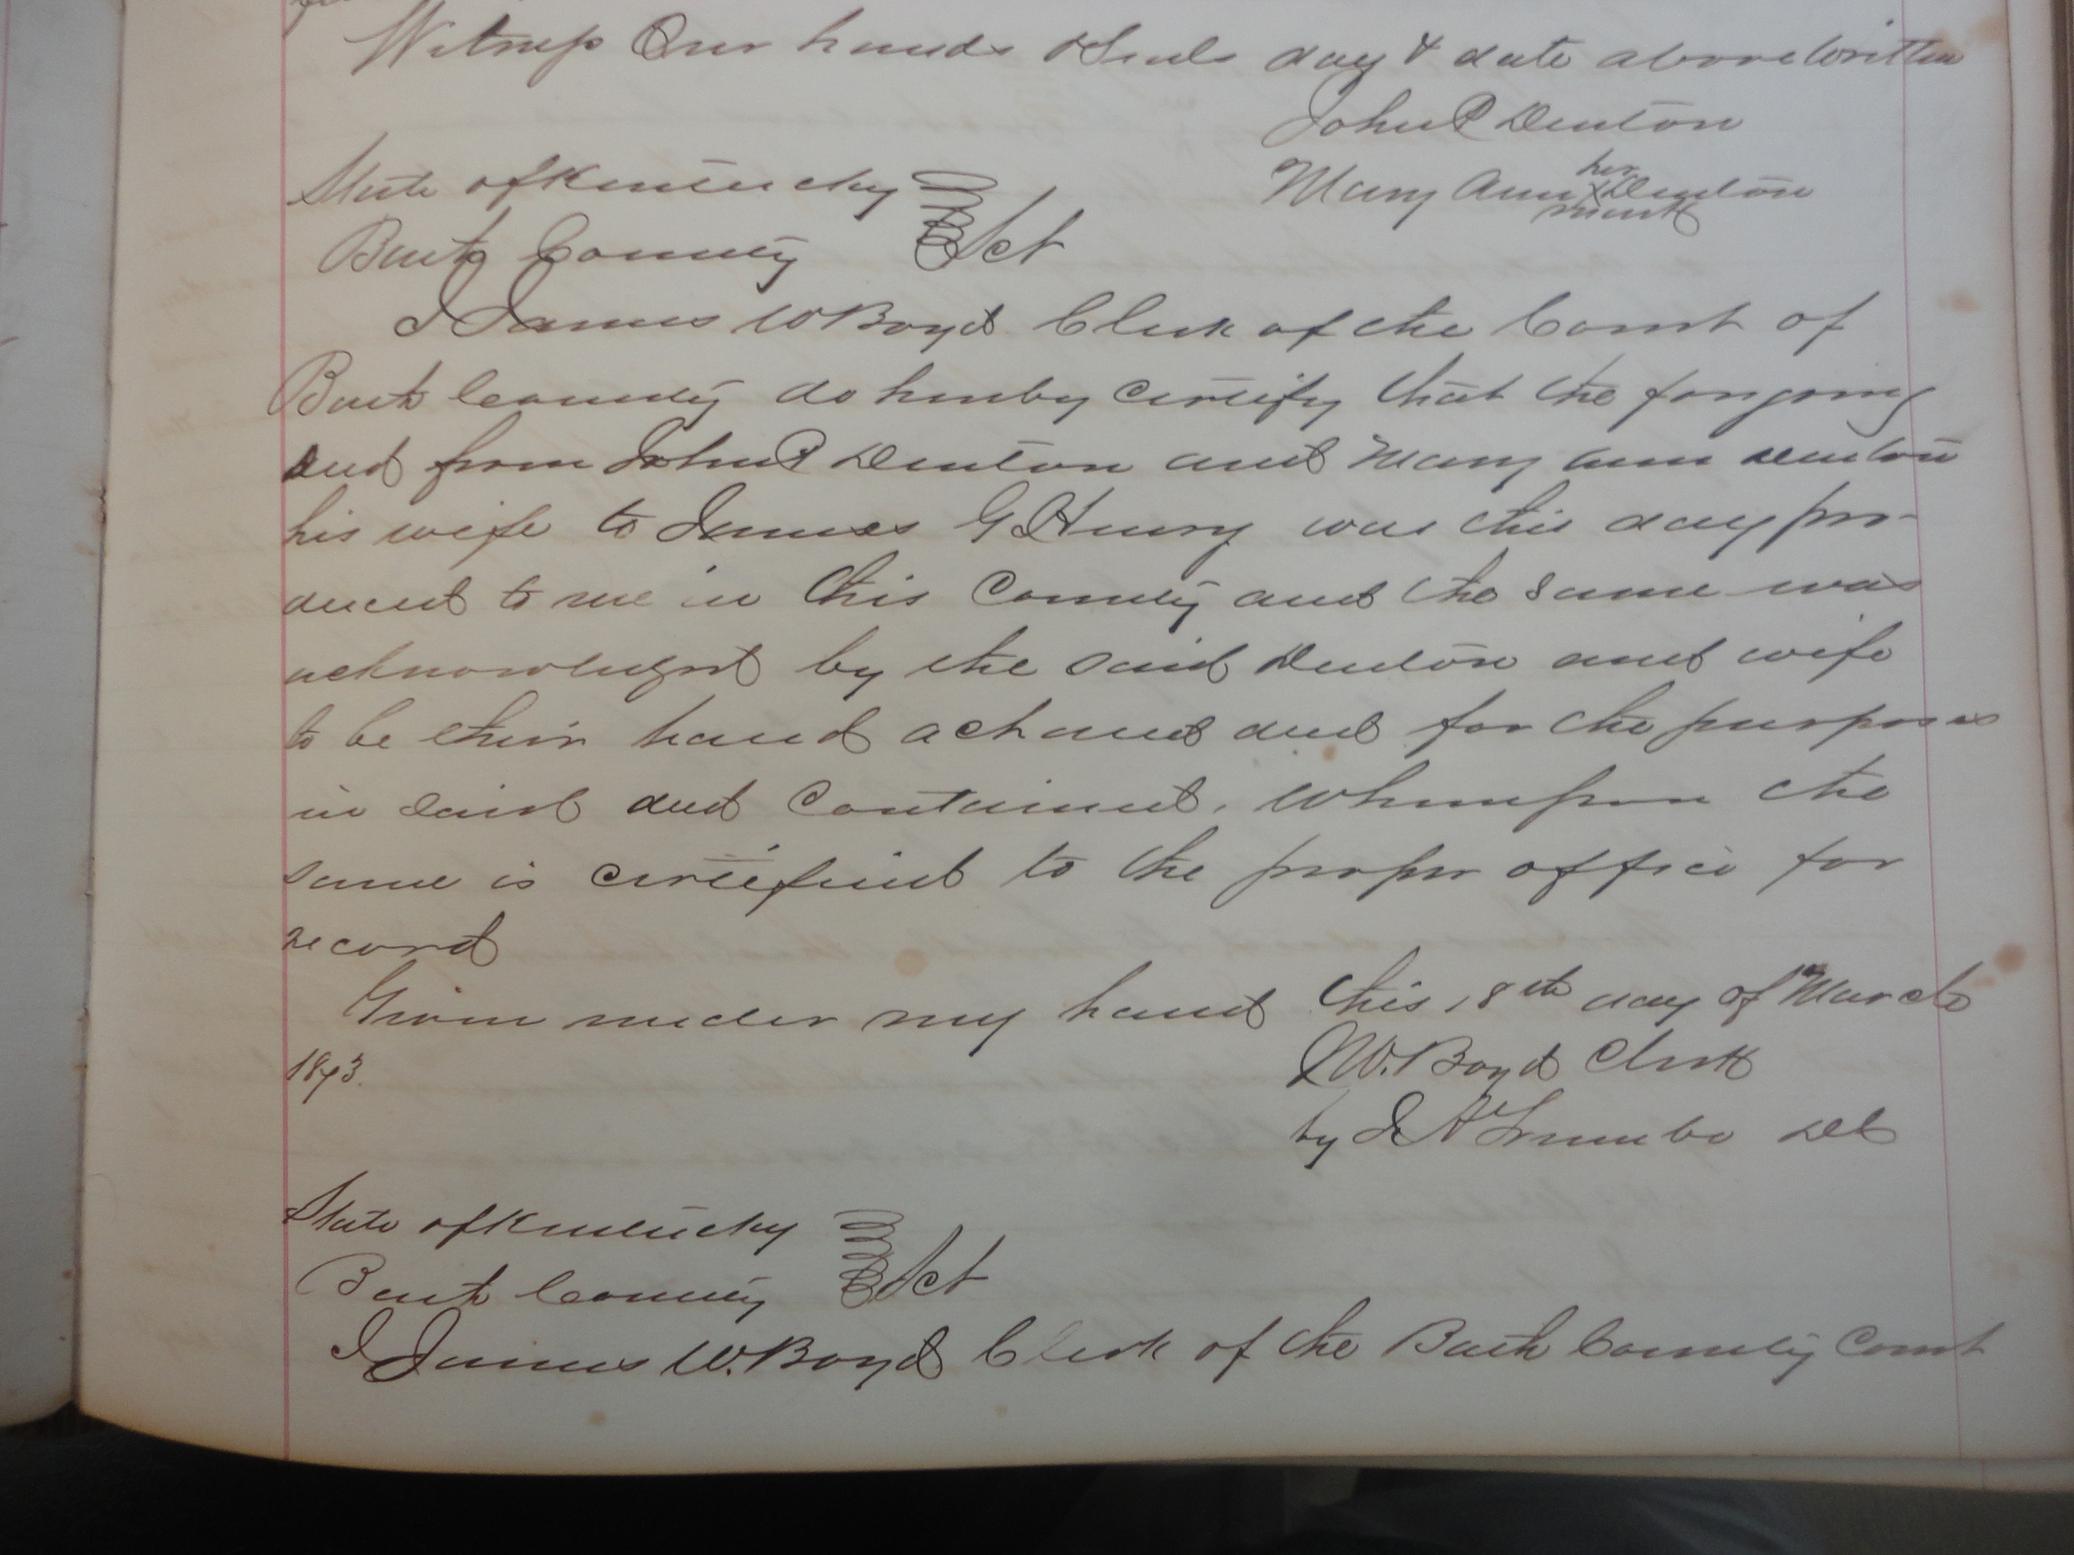 Witness Our hands & Seals day & date above written
John P Denton
Mary Ann her X mark Denton
State of Kentucky
Bath County Sct
I James W Boyd Clerk of the Court of
Bath County do hereby certify that the forgoing
deed from John P Denton and Mary Ann Denton
his wife to James G Henry was this day pro-
duced to me in this County and the same was
acknowledged by the said Denton and wife
to be their hand act and deed for the purposes
in said deed contained. Whereupon the
same is certified to the proper office for
record
Given under my hand this 18th day of March
1873.
J W. Boyd Clerk
by J A Trumbo DC
State of Kentucky
Bath County Sct
I James W. Boyd Clerk of the Bath County Court